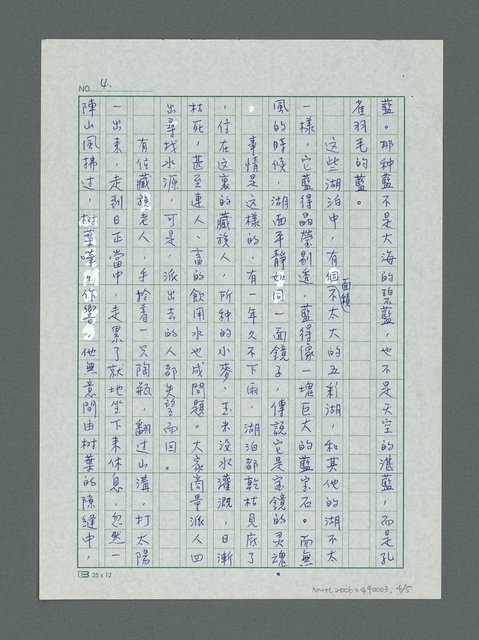 NO. 4.
藍。那種藍不是大海的碧藍，也不是天空的湛藍，而是孔
雀羽毛的藍。
這些湖泊中，有個面積不太大的五彩湖，和其他的湖不太
一樣，它藍得晶瑩剔透，藍得像一塊巨大的藍宝石。而無
風的時候，湖面平靜如同一面鏡子，傳說它是宝鏡的灵魂
。
事情是這樣的，有一年久不下雨，湖泊都乾枯見底了
，住在這裏的藏族人，所种的小麥、玉米没水灌溉，日漸
枯死，甚至連人、畜的飲用水也成問題。大家商量派人四
出尋找水源，可是，派出去的人都失望而回。
有位藏族老人，手拎着一只陶瓶，翻过山溝，打太陽
一出來，走到日正當中，走累了就地坐下來休息，忽然一
陣山風拂过，樹葉嘩嘩作響，他無意間由樹葉的隙縫中，
25x12
NMTL20060490003, 4/5